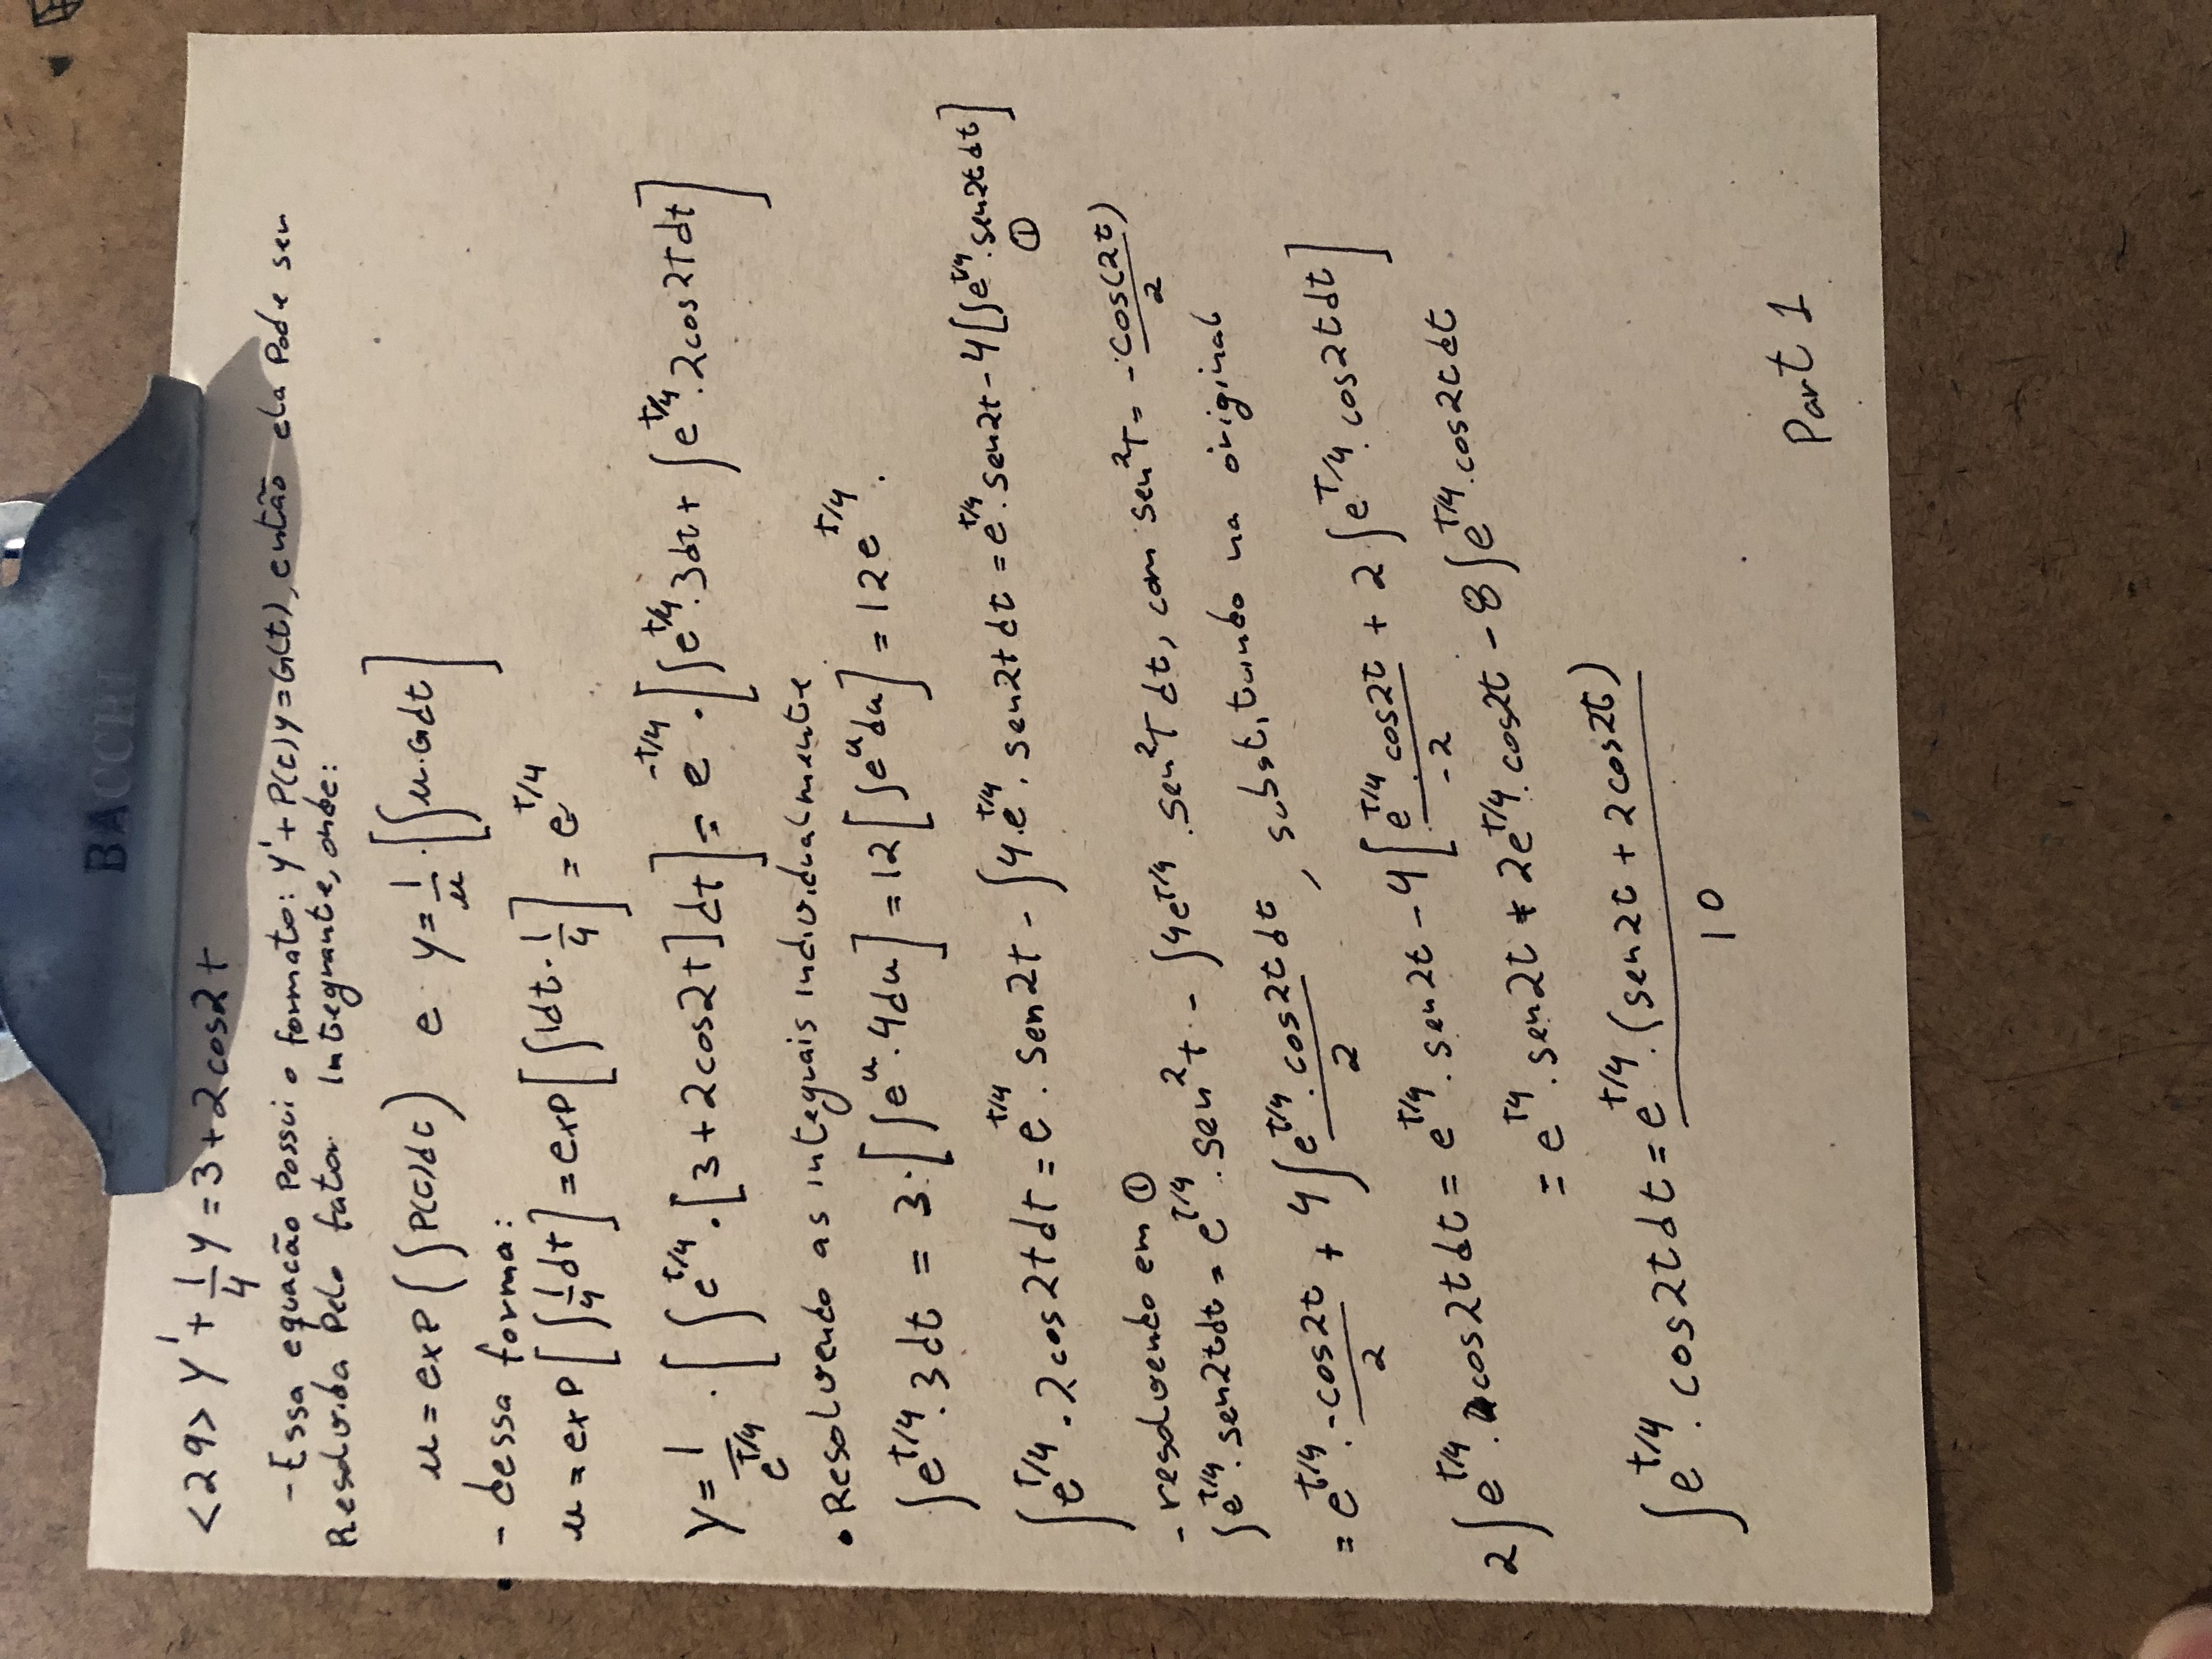 BACCHI
<29> y' + 1/4 y = 3 + 2cos2t
- Essa equacão possui o formato: y' + P(t)y = G(t), então ela pode ser
Resolvida pelo fator Integrante, onde:
u = exp(∫P(t)dt) e y = 1/u · [∫u·Gdt]
- dessa forma:
u = exp[∫1/4 dt] = exp[∫1dt · 1/4] = e^(t/4)
y = 1/e^(t/4) · [∫e^(t/4) · [3 + 2cos2t]dt] = e^(-t/4) · [∫e^(t/4) · 3dt + ∫e^(t/4) · 2cos2tdt]
• Resolvendo as integrais individualmente
∫e^(t/4) · 3dt = 3·[∫e^u · 4du] = 12[∫e^u du] = 12e^(t/4).
∫e^(t/4) · 2cos2tdt = e^(t/4) · sen2t - ∫4·e^(t/4) · sen2tdt = e^(t/4) · sen2t - 4[∫e^(t/4) · sen2tdt]
①
- resolvendo em ①
∫e^(t/4) · sen2tdt = e^(t/4) · sen²t - ∫4e^(t/4) · sen²t dt, com sen²t = -cos(2t)/2
= e^(t/4) · -cos2t/2 + 4∫e^(t/4) · cos2t/2 dt, substituindo na original
2∫e^(t/4) · cos2tdt = e^(t/4) · sen2t - 4[e^(t/4) · cos2t/-2 + 2∫e^(t/4) · cos2tdt]
= e^(t4) · sen2t + 2e^(t/4) · cos2t - 8∫e^(t/4) · cos2tdt
∫e^(t/4) · cos2tdt = e^(t/4) · (sen2t + 2cos2t)/10
Part 1